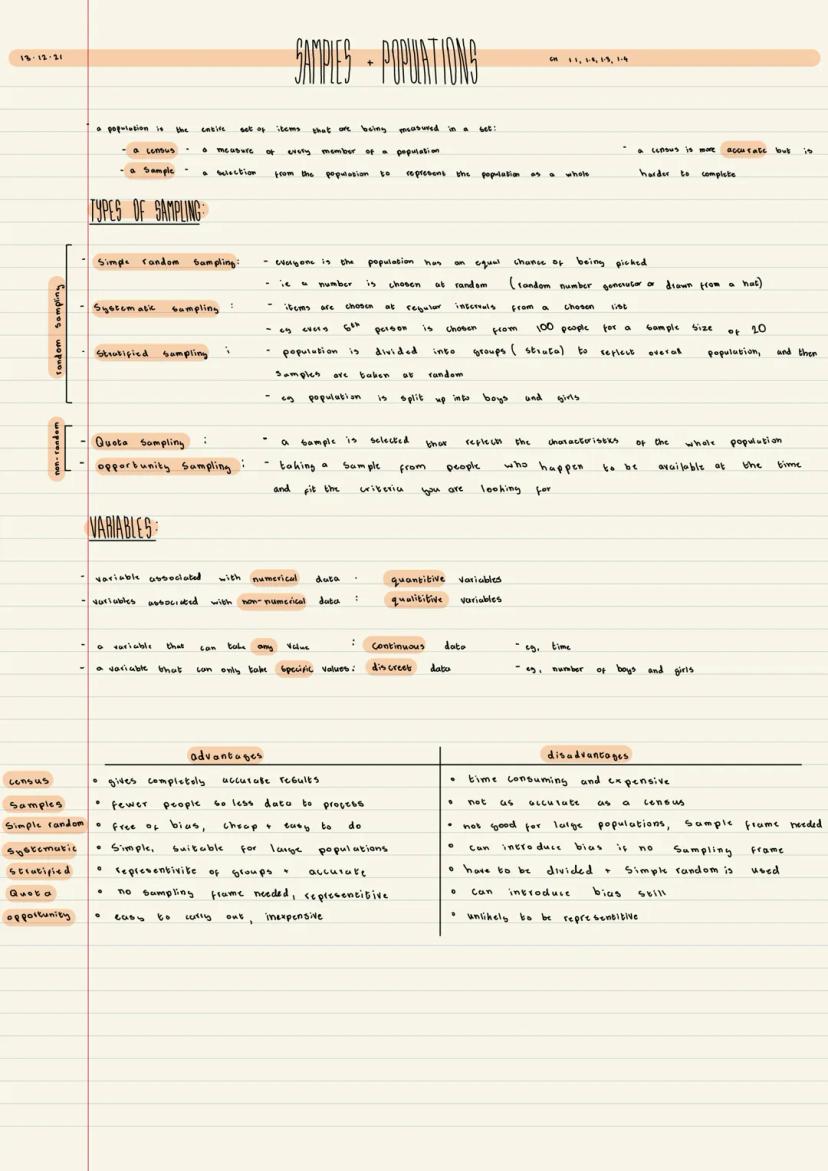 13.12.21 SAMPLES + POPULATIONS CH 1.1, 1.2, 1.3, 1.4
- a population is the entire set of items that are being measured in a set:
- a census - a measure of every member of a population - a census is more accurate but is
- a sample - a selection from the population to represent the population as a whole harder to complete
TYPES OF SAMPLING:
random sampling
- Simple random sampling: - everyone is the population has an equal chance of being picked
- ie a number is chosen at random (random number generator or drawn from a hat)
- Systematic sampling : - items are chosen at regular intervals from a chosen list
- eg every 5th person is chosen from 100 people for a sample size of 20
- Stratified sampling : - population is divided into groups (strata) to reflect overall population, and then
samples are taken at random
- eg population is split up into boys and girls
non-random
- Quota sampling : - a sample is selected that reflects the characteristics of the whole population
- opportunity sampling : - taking a sample from people who happen to be available at the time
and fit the criteria you are looking for
VARIABLES:
- variable associated with numerical data : quantitive variables
- variables associated with non-numerical data : qualititive variables
- a variable that can take any value : continuous data - eg, time
- a variable that can only take specific values: discreet data - eg, number of boys and girls
advantages disadvantages
census • gives completely accurate results • time consuming and expensive
samples • fewer people so less data to process • not as accurate as a census
Simple random • free of bias, cheap + easy to do • not good for large populations, sample frame needed
systematic • Simple, suitable for large populations • can introduce bias if no sampling frame
stratified • representivite of groups + accurate • have to be divided + Simple random is used
Quota • no sampling frame needed, representitive • can introduce bias still
opportunity • easy to carry out, inexpensive • unlikely to be representitive